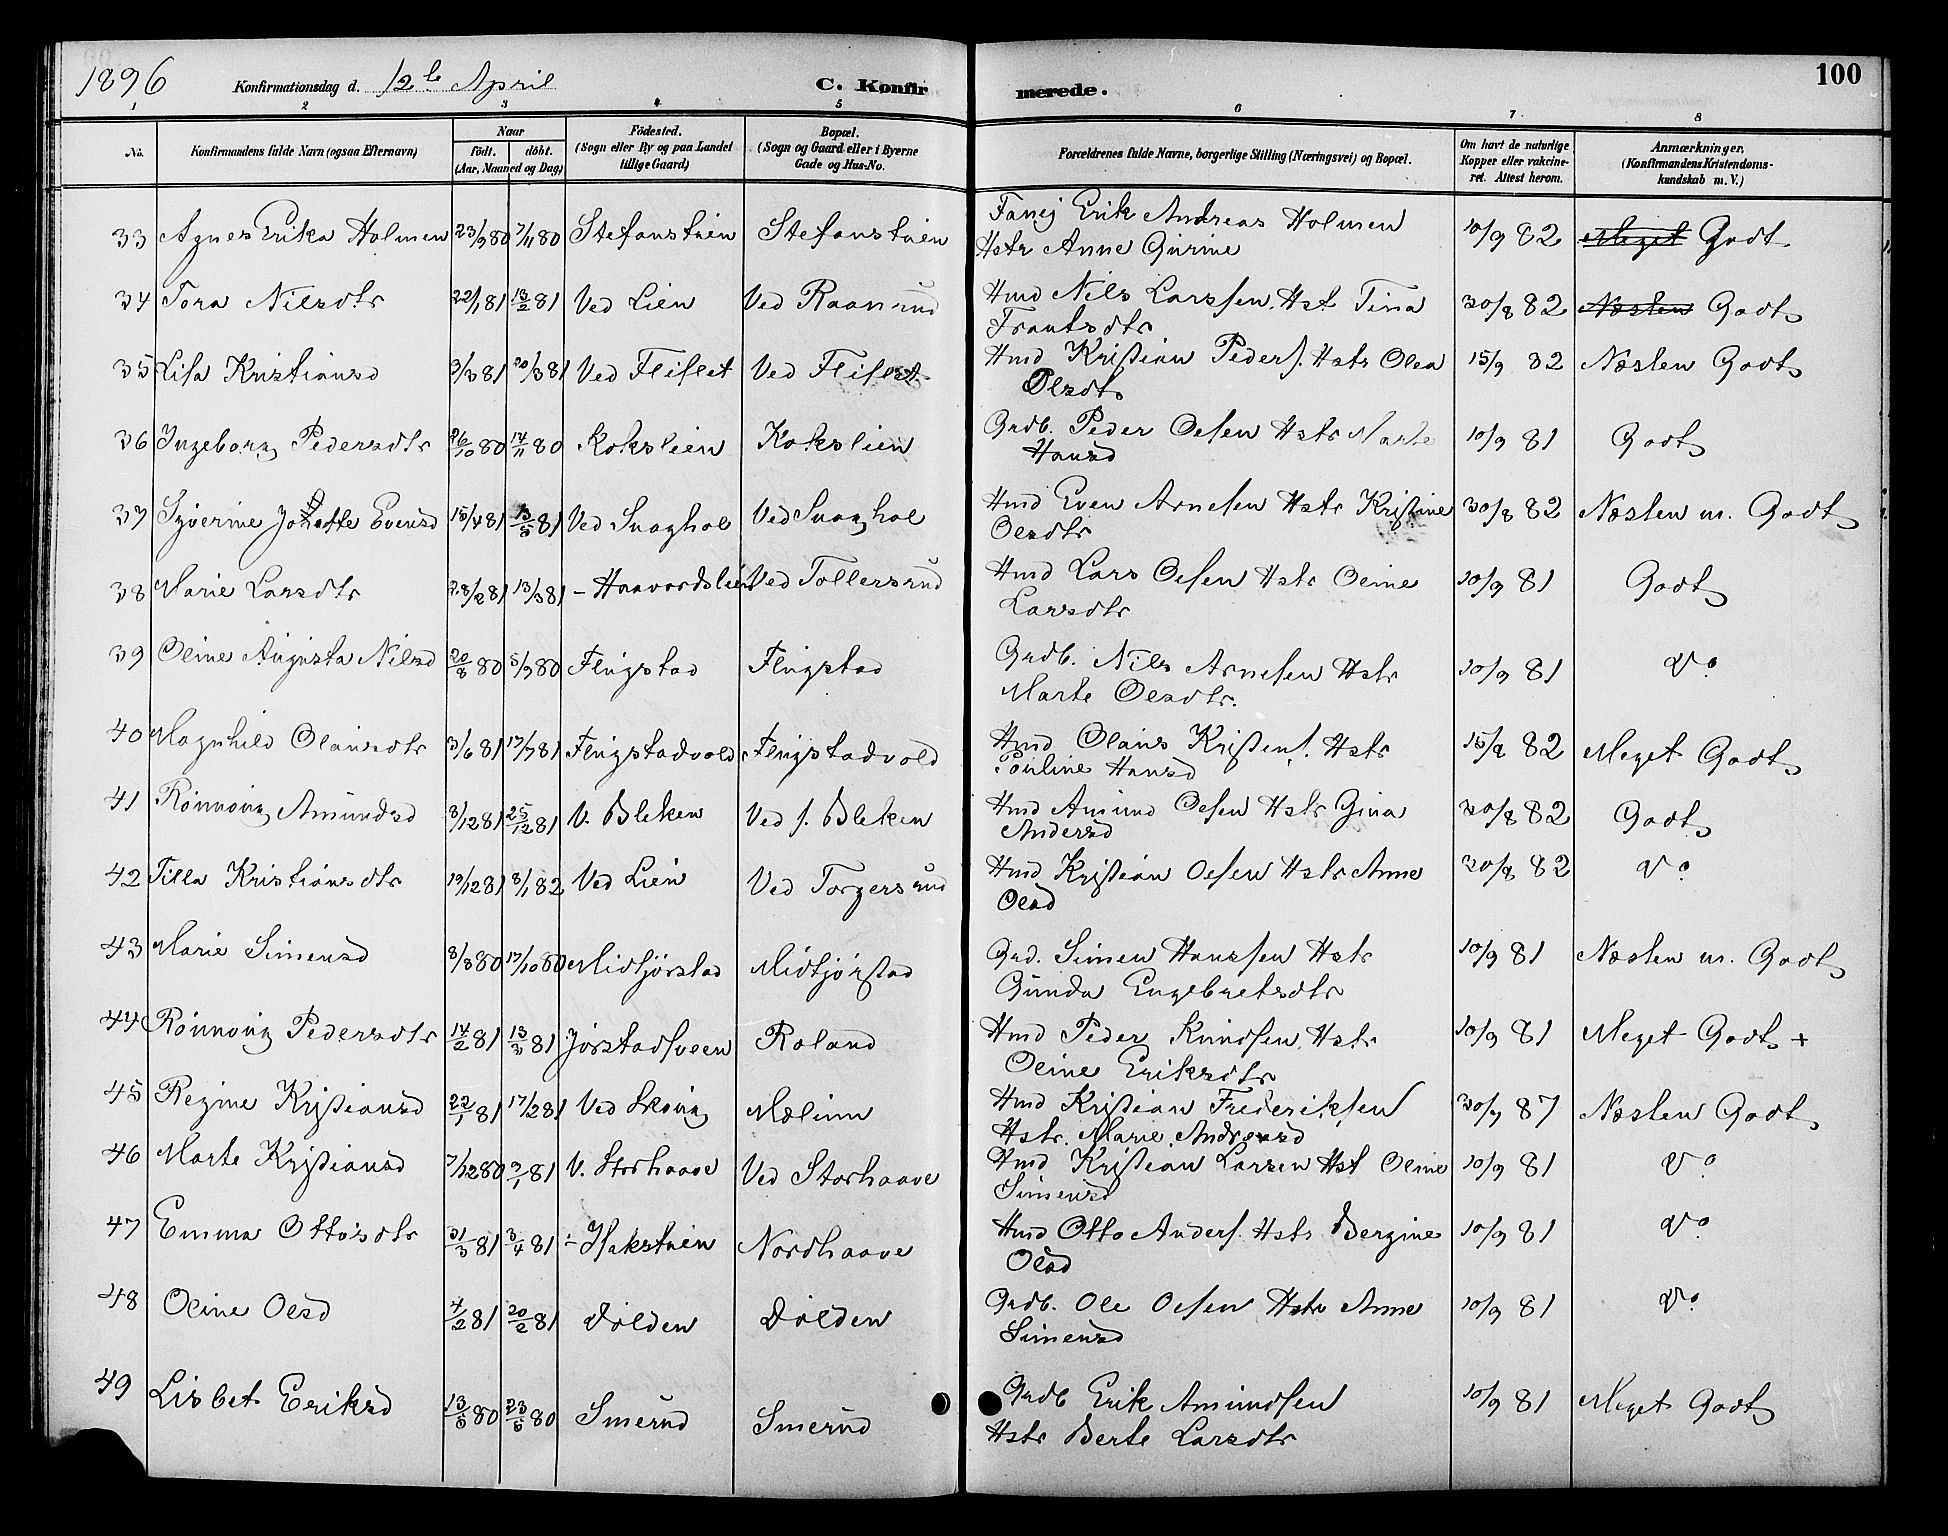 1896 Konfirmationsdag d. 12te April C. Konfirmerede. 100
1 2 3 4 5 6 7 8
No. Konfirmandens fulde Navn (ogsaa Efternavn) Naar födt. döbt. (Aar, Maaned og Dag) Födested. (Sogn eller By og paa Landet tillige Gaard) Bopæl. (Sogn og Gaard eller i Byerne Gade og Hus-No. Forældrenes fulde Navne, borgerlige Stilling (Næringsvei) og Bopæl. Om havt de naturlige Kopper eller vakcineret. Attest herom. Anmærkninger. (Konfirmandens Kristendomskundskab m. V.)
33 Agnes Erika Holmen 23/9 80 7/11 80 Stefanstuen Stefanstuen Erik Andreas Holmen 10/9 82 Meget Godt
Hstr Anne Gurine
34 Tora Nilsdtr 22/1 81 13/2 81 Ved Lien Ved Raanrud Hmd Nils Larssen. Hst. Tina 30/8 82 Næsten Godt
Frantsdtr
35 Lisa Kristiansd 3/3 81 20/3 81 Ved Fliflet Ved Fliflet Hmd Kristian Peders. Hstr Olea 15/9 82 Næsten Godt
Olsdt
36 Ingeborg Pedersdtr 26/10 80 14/11 80 Kokslien Kokslien Grdb. Peder Olsen Hstr Marte 10/9 81 Godt
Hansd
37 Syverine Evensd 15/4 81 Ved Snaghol Ved Snaghol Hmd Even Arnesen Hstr Kristine 30/8 82 Næsten m. Godt
Olsdtr
38 Marie Larsdtr 28/2 81 13/3 81 - Haavordslien Ved Tollersrud Hmd Lars Olsen Hstr Oline 10/9 81 Godt
Larsdtr
39 Oline Augusta Nilsd 20/8 80 5/9 80 Flugstad Flugstad Grdb. Nils Arnesen Hstr 10/9 81 Do
Marte Olsdtr.
40 Magnhild Olausdtr 3/6 81 17/7 81 Flugstadvold Flugstadvold Hmd Olaus Kristens. Hstr 15/9 82 Meget Godt
Pauline Hansd
41 Rønnoug Amundsd 3/12 81 25/12 81 V. Bleken Ved s. Bleken Hmd Amund Olsen Hstr Gina 30/8 82 Godt
Andersd
42 Tilla Kristiansdtr 19/12 81 8/1 82 Ved Lien Ved Torgersrud Hmd Kristian Olsen Hstr Anne 30/8 82 Do
Olsd
43 Marie Simensd 8/8 80 17/10 80 Midtjørstad Midtjørstad Grd. Simen Hanssen Hstr 10/9 81 Næsten m. Godt
Gunda Engebretsdtr
44 Rønnoug Pedersdtr 14/2 81 13/3 81 Jørstadsveen Roland Hmd Peder Knudsen Hstr 10/9 81 Meget Godt +
Oline Eriksdtr
45 Regine Kristiansd 22/1 81 17/2 81 Ved Skoug Mælinn Hmd Kristian Frederiksen 30/7 87 Næsten Godt
Hstr. Marie Andreasd
46 Marte Kristiansd 7/12 80 9/1 81 V. Storhaave Ved Storhaave Hmd Kristian Larsen Hst Oline 10/9 81 Do
Simensd
47 Emma Ottosdtr 31/3 81 3/4 81 - Isakstuen Nordhaave Hmd Otto Anders. Hstr Bergine 10/9 81 Do
Olsd
48 Oline Olsd 4/2 81 20/2 81 Dølden Dølden Grdb. Ole Olsen Hstr Anne 10/9 81 Do
Simensd
49 Lisbet Eriksd 13/5 80 23/5 80 Smerud Smerud Grdb Erik Amundsen 10/9 81 Meget Godt
Hstr Berte Larsdtr